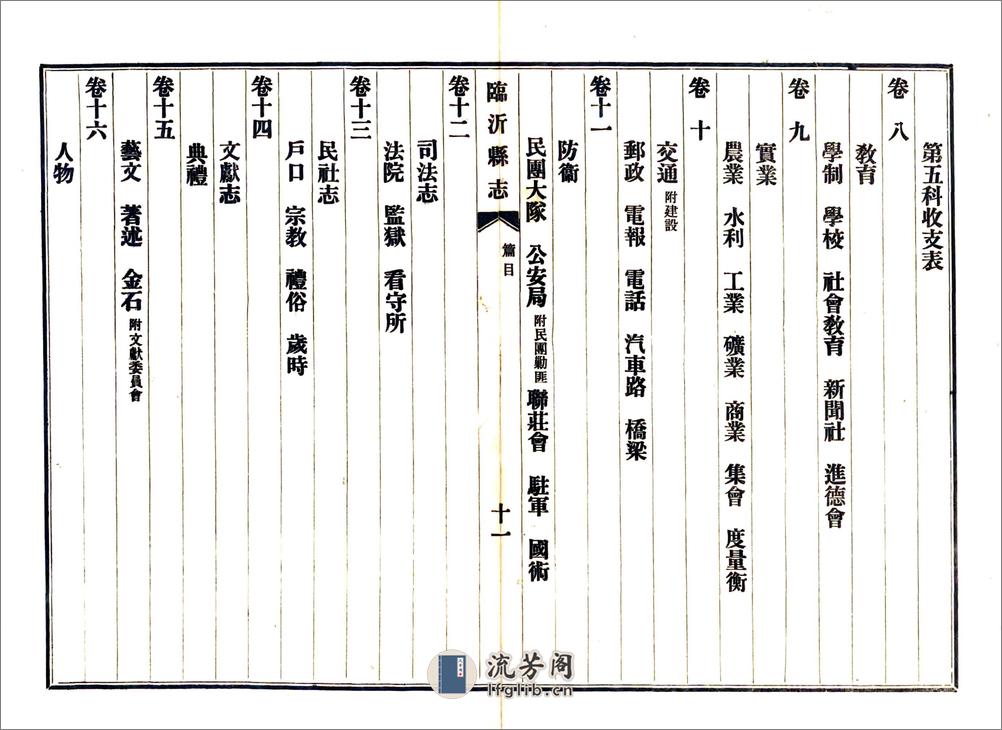 第五科收支表
卷八
教育
學制 學校 社會教育 新聞社 進德會
卷九
實業
農業 水利 工業 礦業 商業 集會 度量衡
卷十
交通 附建設
郵政 電報 電話 汽車路 橋梁
卷十一
防衛
民團大隊 公安局 附民團勦匪 聯莊會 駐軍 國術
臨沂縣志 篇目 十一
卷十二
司法志
法院 監獄 看守所
卷十三
民社志
戶口 宗教 禮俗 歲時
卷十四
文獻志
典禮
卷十五
藝文 著述 金石 附文獻委員會
卷十六
人物
流芳阁
lfglib.cn